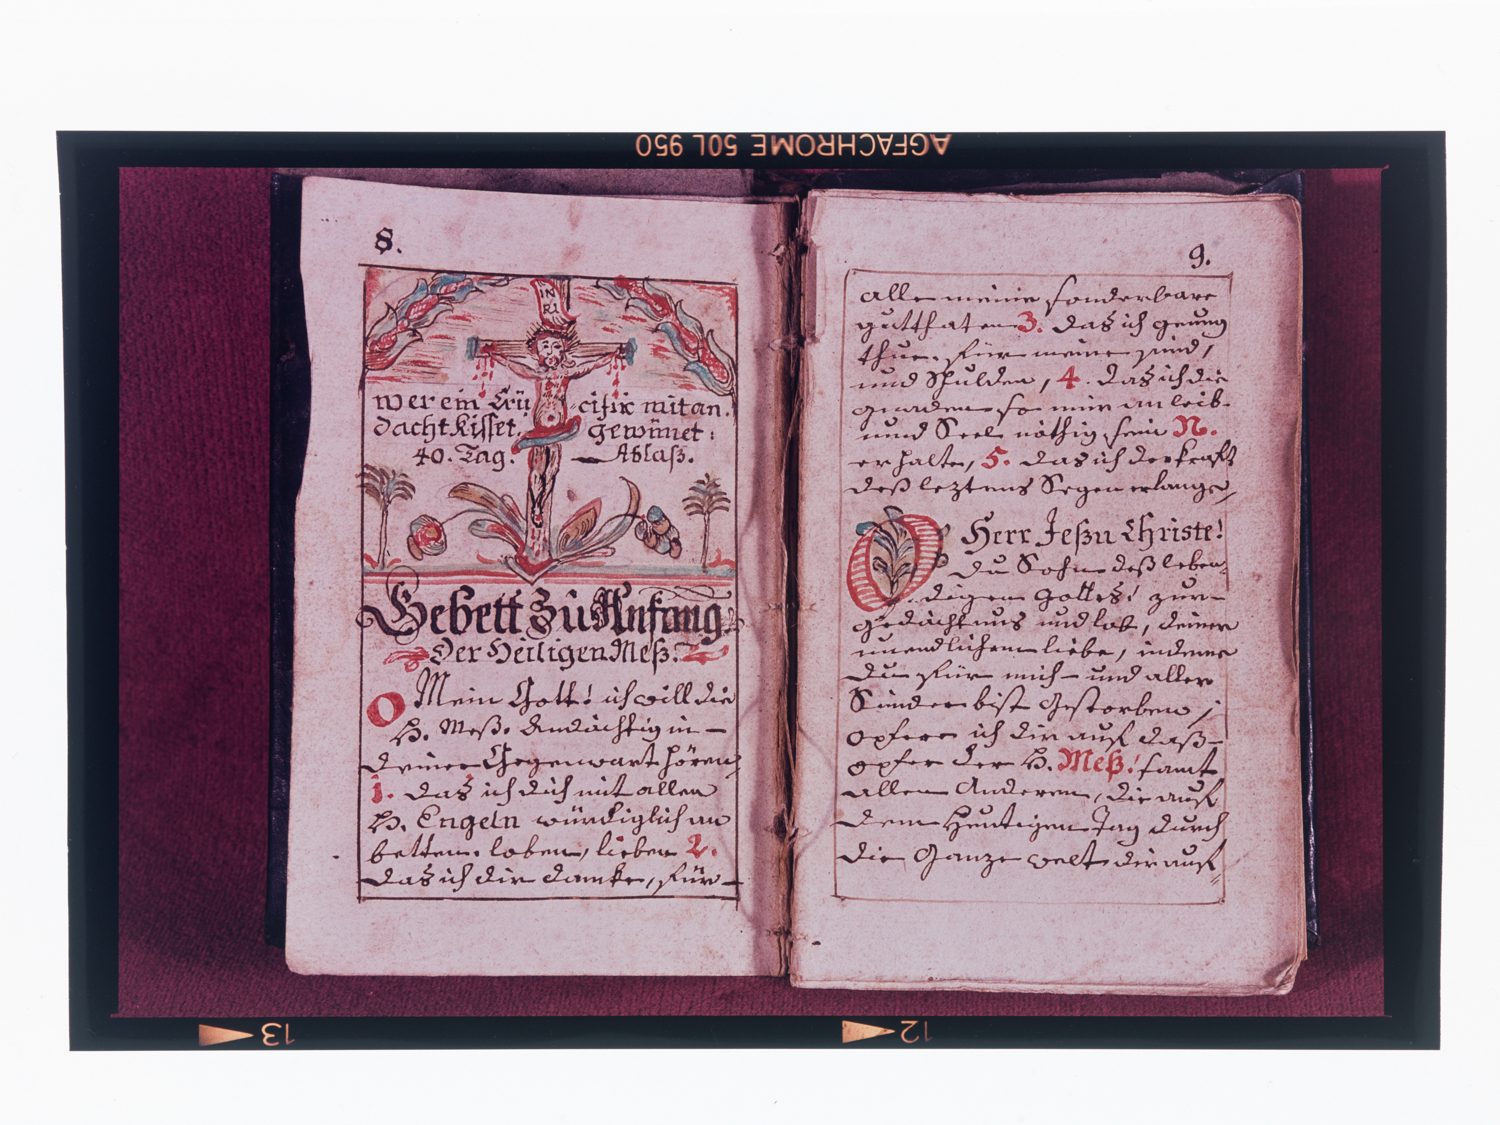 AGFACHROME 50L 950
8.
IN
RI
wer ein Crü cifix mit an.
dacht Kisset. gewinet:
40. Tag. Ablaß.
Gebett Zu Anfang
Der Heiligen Meß.
O Mein Gott! ich will die
H. Meß. Andächtig in
deiner Gegenwart hören,
1. das ich dich mit allen
H. Engeln würdiglich an
betten, loben, lieben 2.
das ich dir dancke, für
9.
alle meine sonderbare
gutthaten 3. das ich genug
thue. für meine sünd,
und Schulden, 4. das ich die
gnaden so mir an leib
und Seel nöthig sein N.
erhalte, 5. das ich der krafft
deß leztens Segen erlange,
O Herr Jesu Christe!
Du Sohn deß leben,
digen Gottes! zur
gedächtnus und lob, deiner
unendlichen liebe, in deme
Du für mich und aller
Sünder bist Gestorben,
opfere ich dir auf daß
opfer der H. Meß! samt
allen Anderen, die auf
dem Heutigen Tag durch
die Ganze welt dir auf
13
12